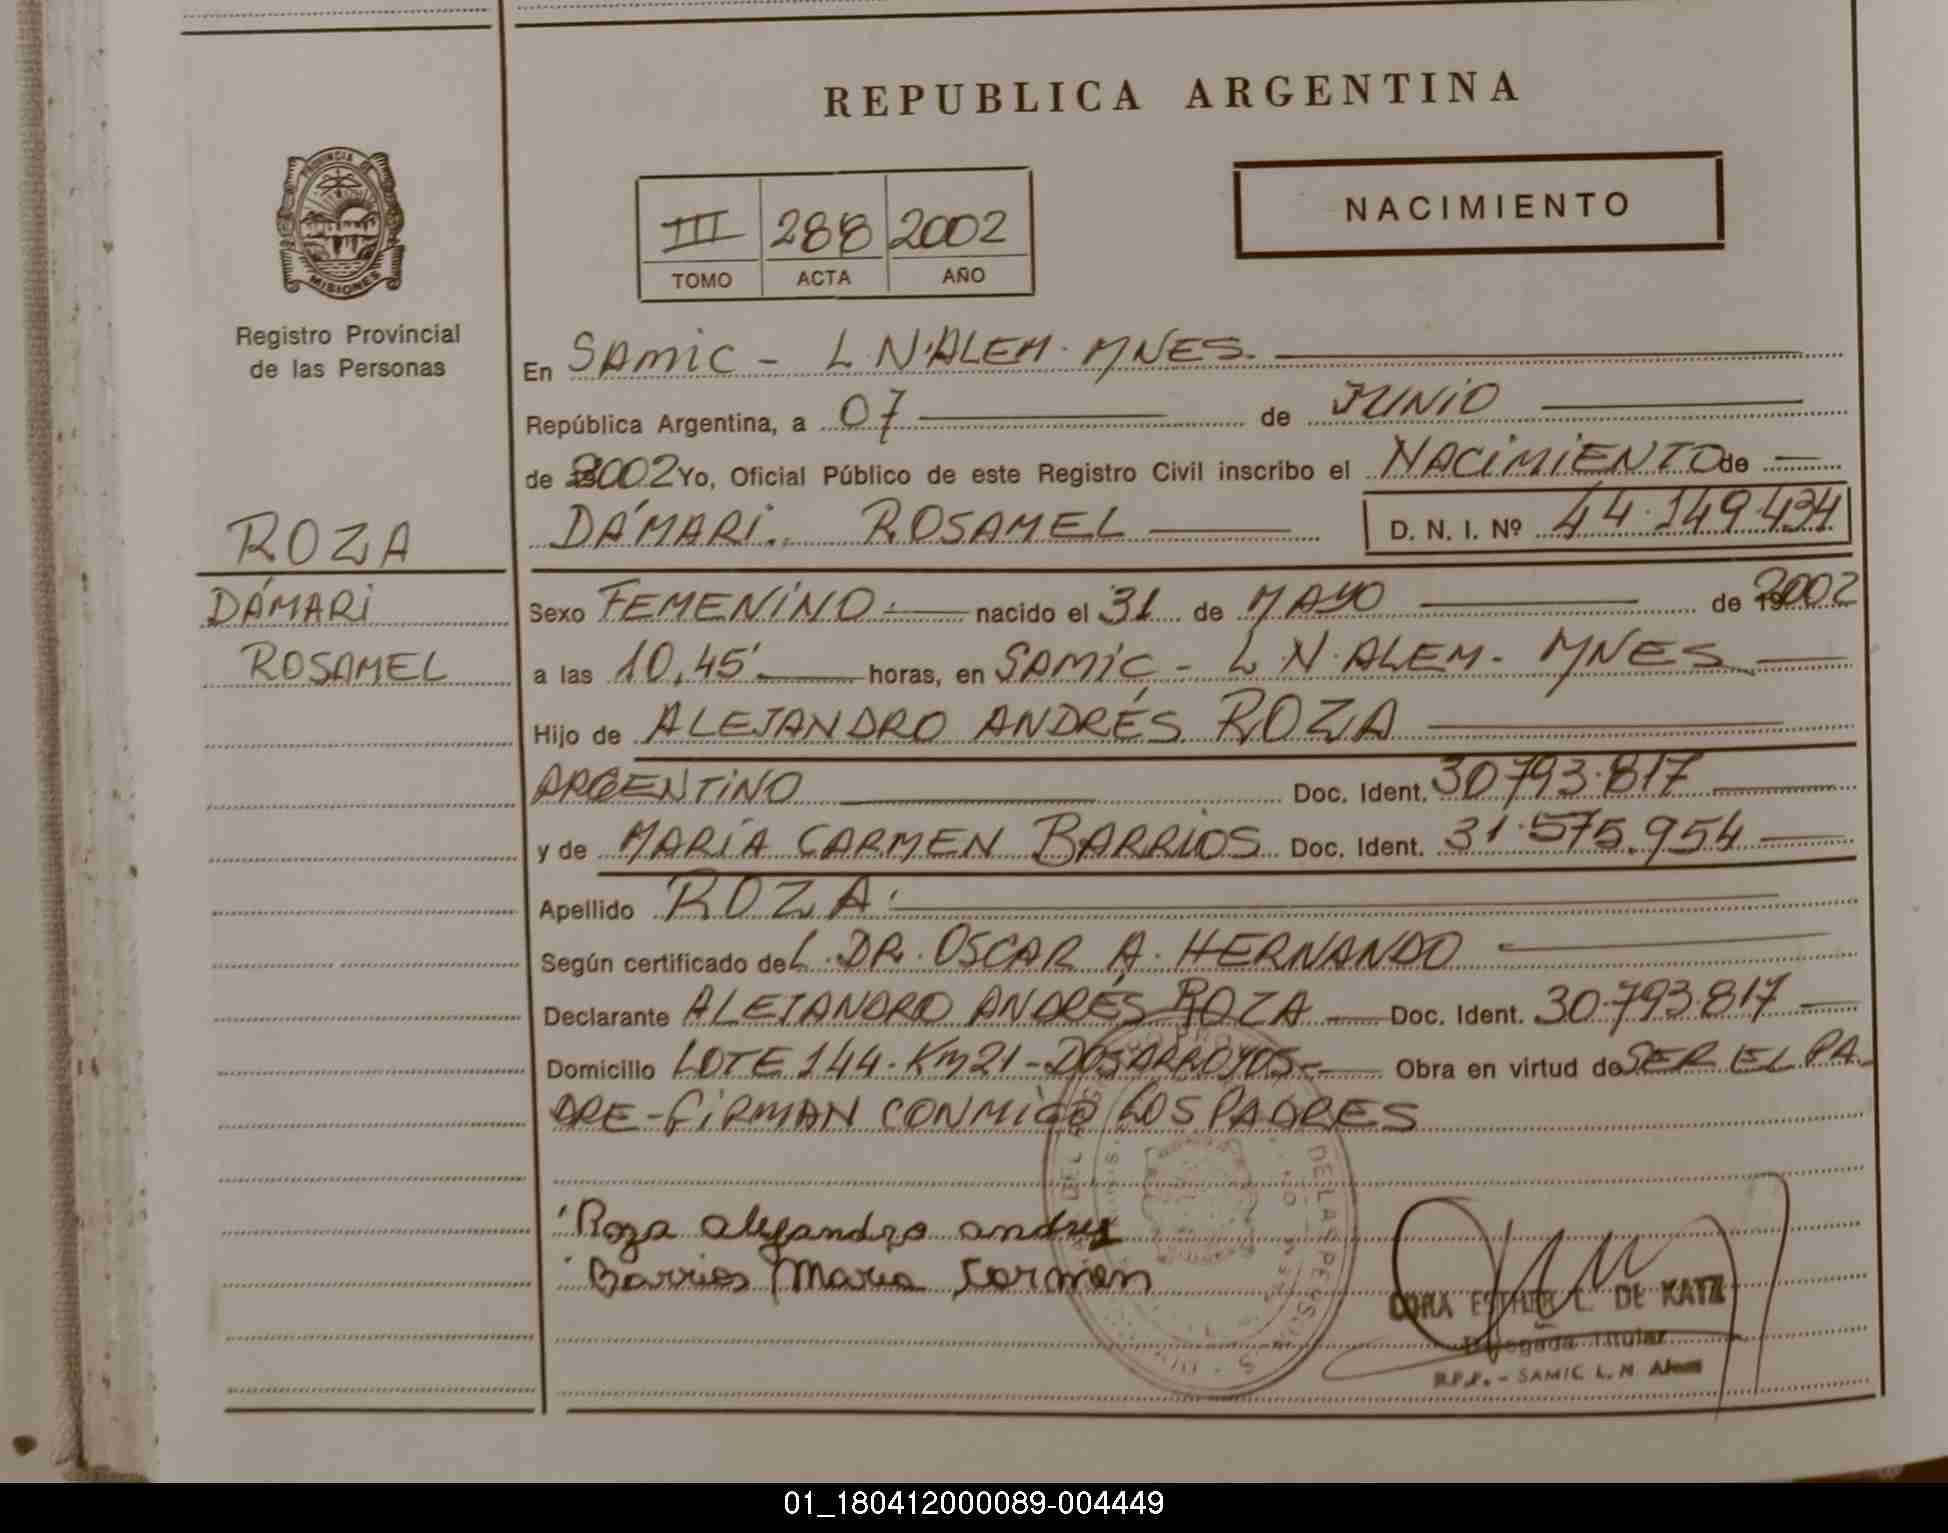 REPUBLICA ARGENTINA
PROVINCIA DE
MISIONES
Registro Provincial
de las Personas
NACIMIENTO
III 288 2002
TOMO ACTA AÑO
En SAMIC - L.N.ALEM. MNES.
República Argentina, a 07 de JUNIO
de 2002 Yo, Oficial Público de este Registro Civil inscribo el NACIMIENTO de
DÁMARI ROSAMEL D. N. I. Nº 44.149.434
ROZA
DÁMARI
ROSAMEL
Sexo FEMENINO nacido el 31 de MAYO de 2002
a las 10,45' horas, en SAMIC - L N. ALEM - MNES
Hijo de ALEJANDRO ANDRÉS ROZA
ARGENTINO Doc. Ident. 30793.817
y de MARÍA CARMEN BARRIOS Doc. Ident. 31.575.954
Apellido ROZA
Según certificado deL. DR. OSCAR A. HERNANDO
Declarante ALEJANDRO ANDRÉS ROZA Doc. Ident. 30.793.817
Domicilio LOTE 144. KM21 - DOS ARROYOS - Obra en virtud de SER EL PA-
DRE - FIRMAN CONMIGO LOS PADRES
Roza alejandro andres
Barrios Maria Carmen
DE LAS PERSONAS
CORA ESTHER L. DE KATZ
Delegada Titular
R.P.P. - SAMIC L. N. Alem
01_180412000089-004449